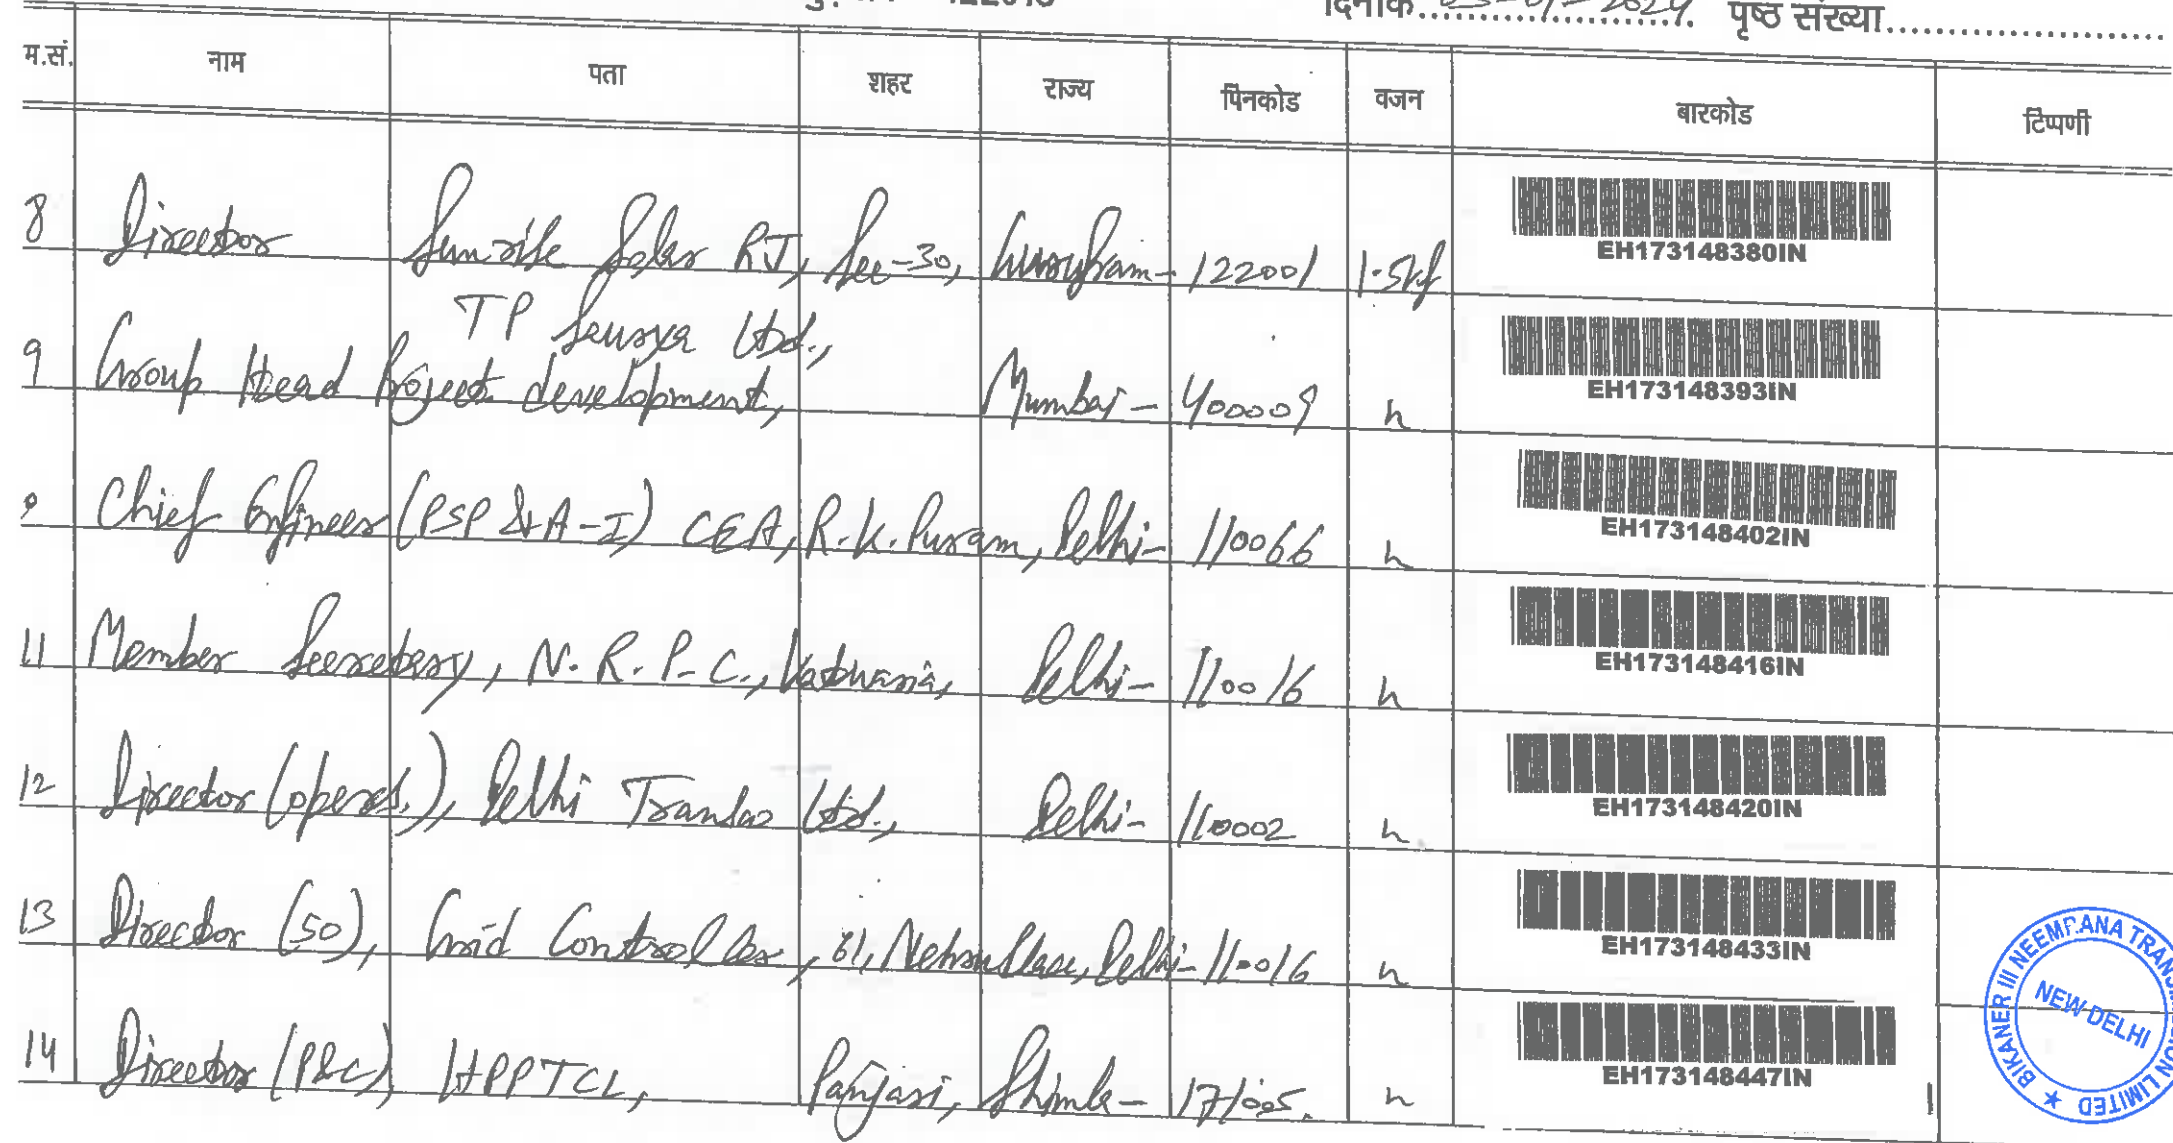 दिनांक 2024 पृष्ठ संख्या
म.सं. नाम पता शहर राज्य पिनकोड वजन बारकोड टिप्पणी
8 Director Sunrise Solar RJ, Sec-30, Gurugram- 122001 1.5kg EH173148380IN
TP Saurya Ltd.,
9 Group Head Project development, Mumbai- 400009 EH173148393IN
Chief Engineer (PSP & A-I) CEA, R.K. Puram, Delhi- 110066 EH173148402IN
11 Member Secretary, N.R.P.C., Katwaria, Delhi- 110016 EH173148416IN
12 Director (operat.), Delhi Transco Ltd., Delhi- 110002 EH173148420IN
13 Director (SO), Grid Controller, 61, Nehru Place, Delhi- 110016 EH173148433IN
14 Director (P&C) HPPTCL, Panjari, Shimla- 171005. EH173148447IN
BIKANER III NEEMRANA TRANSMISSION LIMITED ★
NEW DELHI